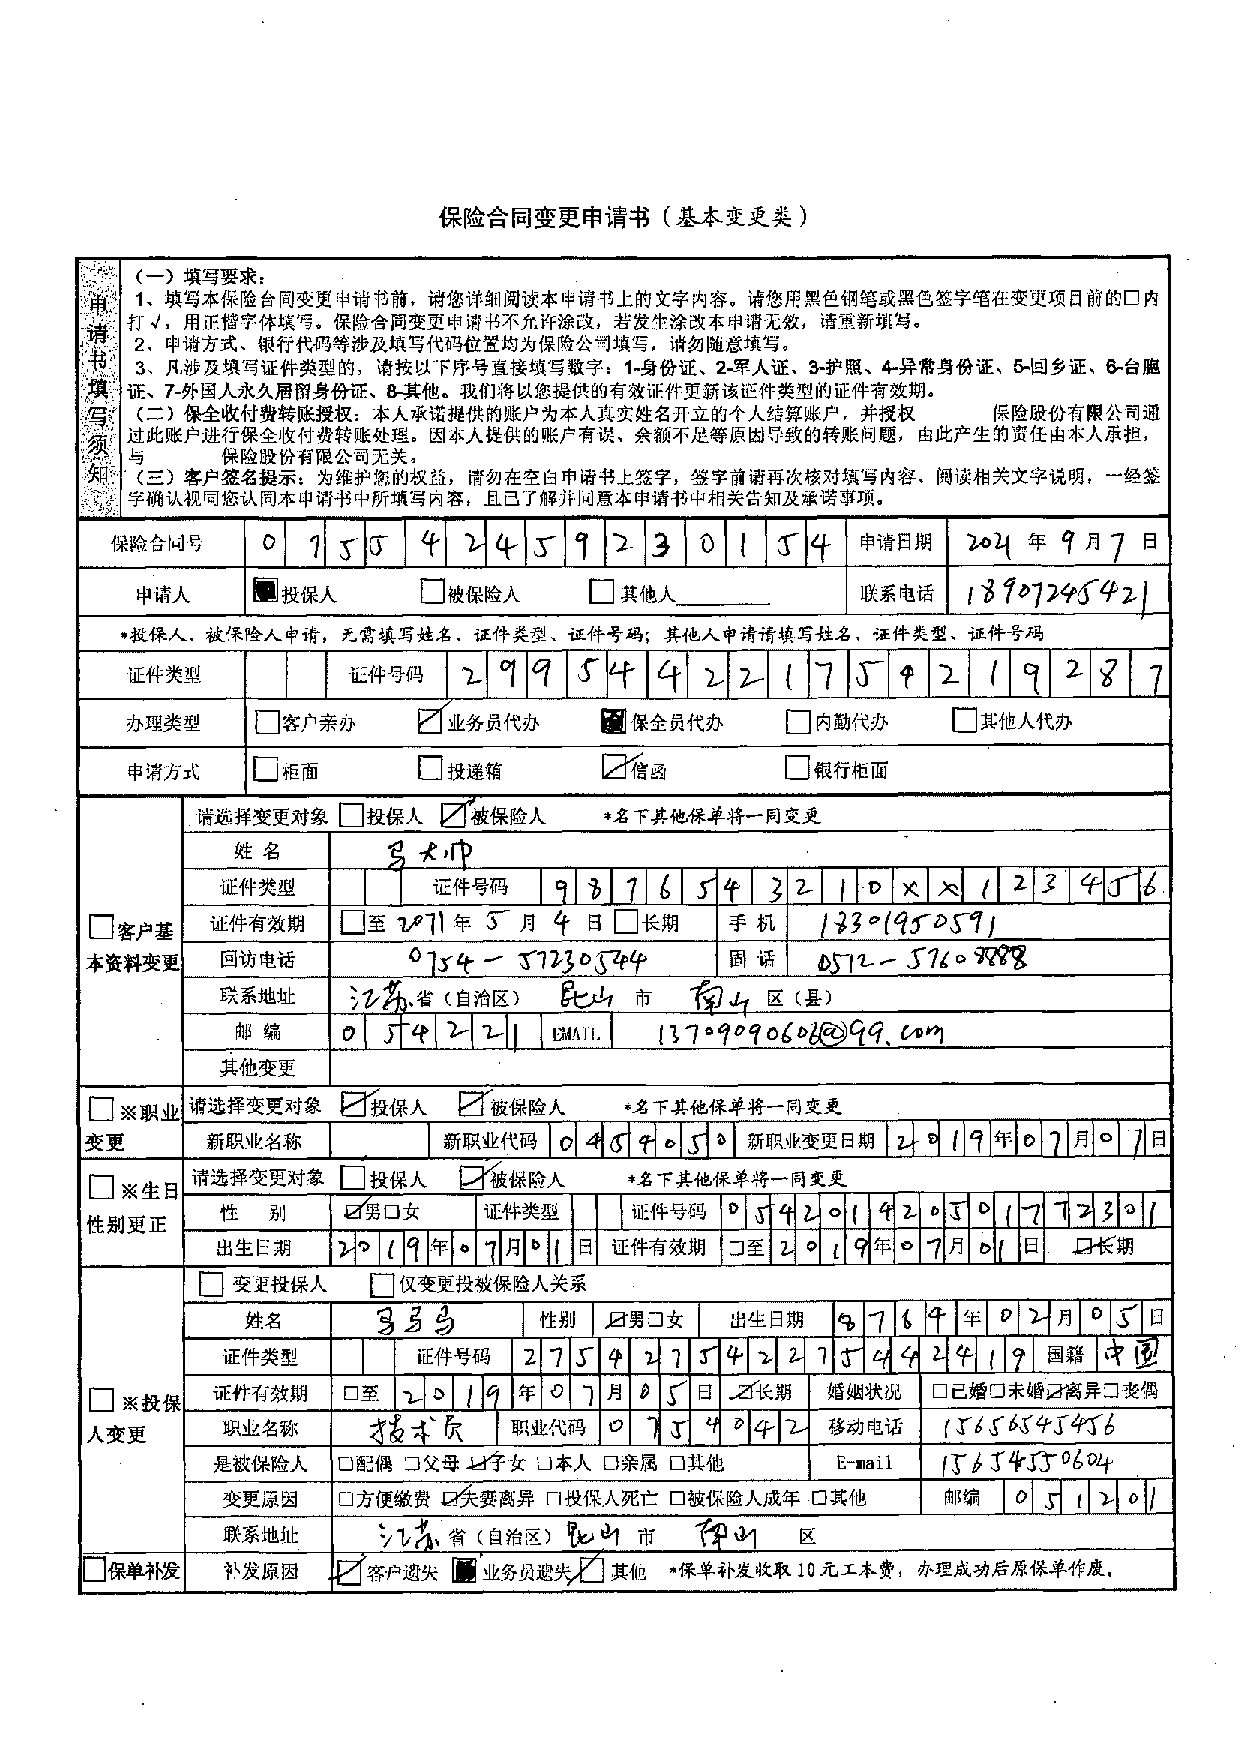 保险合同变更申请书（基本变更类）
申请书填写须知
（一）填写要求：
1、填写本保险合同变更申请书前，请您详细阅读本申请书上的文字内容。请您用黑色钢笔或黑色签字笔在变更项目前的□内
打√，用正楷字体填写。保险合同变更申请书不允许涂改，若发生涂改本申请无效，请重新填写。
2、申请方式、银行代码等涉及填写代码位置均为保险公司填写，请勿随意填写。
3、凡涉及填写证件类型的，请按以下序号直接填写数字：1-身份证、2-军人证、3-护照、4-异常身份证、5-回乡证、6-台胞
证、7-外国人永久居留身份证、8-其他。我们将以您提供的有效证件更新该证件类型的证件有效期。
（二）保全收付费转账授权：本人承诺提供的账户为本人真实姓名开立的个人结算账户，并授权 保险股份有限公司通
过此账户进行保全收付费转账处理。因本人提供的账户有误、余额不足等原因导致的转账问题，由此产生的责任由本人承担，
与 保险股份有限公司无关。
（三）客户签名提示：为维护您的权益，请勿在空白申请书上签字，签字前请再次核对填写内容、阅读相关文字说明，一经签
字确认视同您认同本申请书中所填写内容，且已了解并同意本申请书中相关告知及承诺事项。
保险合同号 075542459230154 申请日期 2021 年 9 月 7 日
申请人 投保人 □被保险人 □其他人 联系电话 18907245421
*投保人、被保险人申请，无需填写姓名、证件类型、证件号码；其他人申请请填写姓名、证件类型、证件号码
证件类型 证件号码 299544221754219287
办理类型 □客户亲办 ☑业务员代办 保全员代办 □内勤代办 □其他人代办
申请方式 □柜面 □投递箱 ☑信函 □银行柜面
□客户基本资料变更
请选择变更对象 □投保人 ☑被保险人 *名下其他保单将一同变更
姓名 马大帅
证件类型 证件号码 9876543210xx123456
证件有效期 □至 2071 年 5 月 4 日 □长期 手机 18301950591
回访电话 0754-57230544 固话 0512-57608888
联系地址 江苏 省（自治区） 昆山 市 南山 区（县）
邮编 054221 EMAIL 13709090606@qq.com
其他变更
□※职业变更
请选择变更对象 ☑投保人 ☑被保险人 *名下其他保单将一同变更
新职业名称 新职业代码 0454050 新职业变更日期 2019年07月07日
□※生日性别更正
请选择变更对象 □投保人 ☑被保险人 *名下其他保单将一同变更
性别 ☑男□女 证件类型 证件号码 054201420501772301
出生日期 2019年07月01日 证件有效期 □至 2019年07月01日 ☑长期
□※投保人变更
□ 变更投保人 □仅变更投被保险人关系
姓名 马马马 性别 ☑男□女 出生日期 8764年02月05日
证件类型 证件号码 275427542275442419 国籍 中国
证件有效期 □至 2019年07月05日 ☑长期 婚姻状况 □已婚□未婚☑离异□丧偶
职业名称 技术员 职业代码 0754042 移动电话 15656545456
是被保险人 □配偶 □父母 ☑子女 □本人 □亲属 □其他 E-mail 15654550604
变更原因 □方便缴费 ☑夫妻离异 □投保人死亡 □被保险人成年 □其他 邮编 051201
联系地址 江苏 省（自治区） 昆山 市 南山 区
□保单补发 补发原因 ☑客户遗失 业务员遗失 ☑其他 *保单补发收取10元工本费，办理成功后原保单作废。